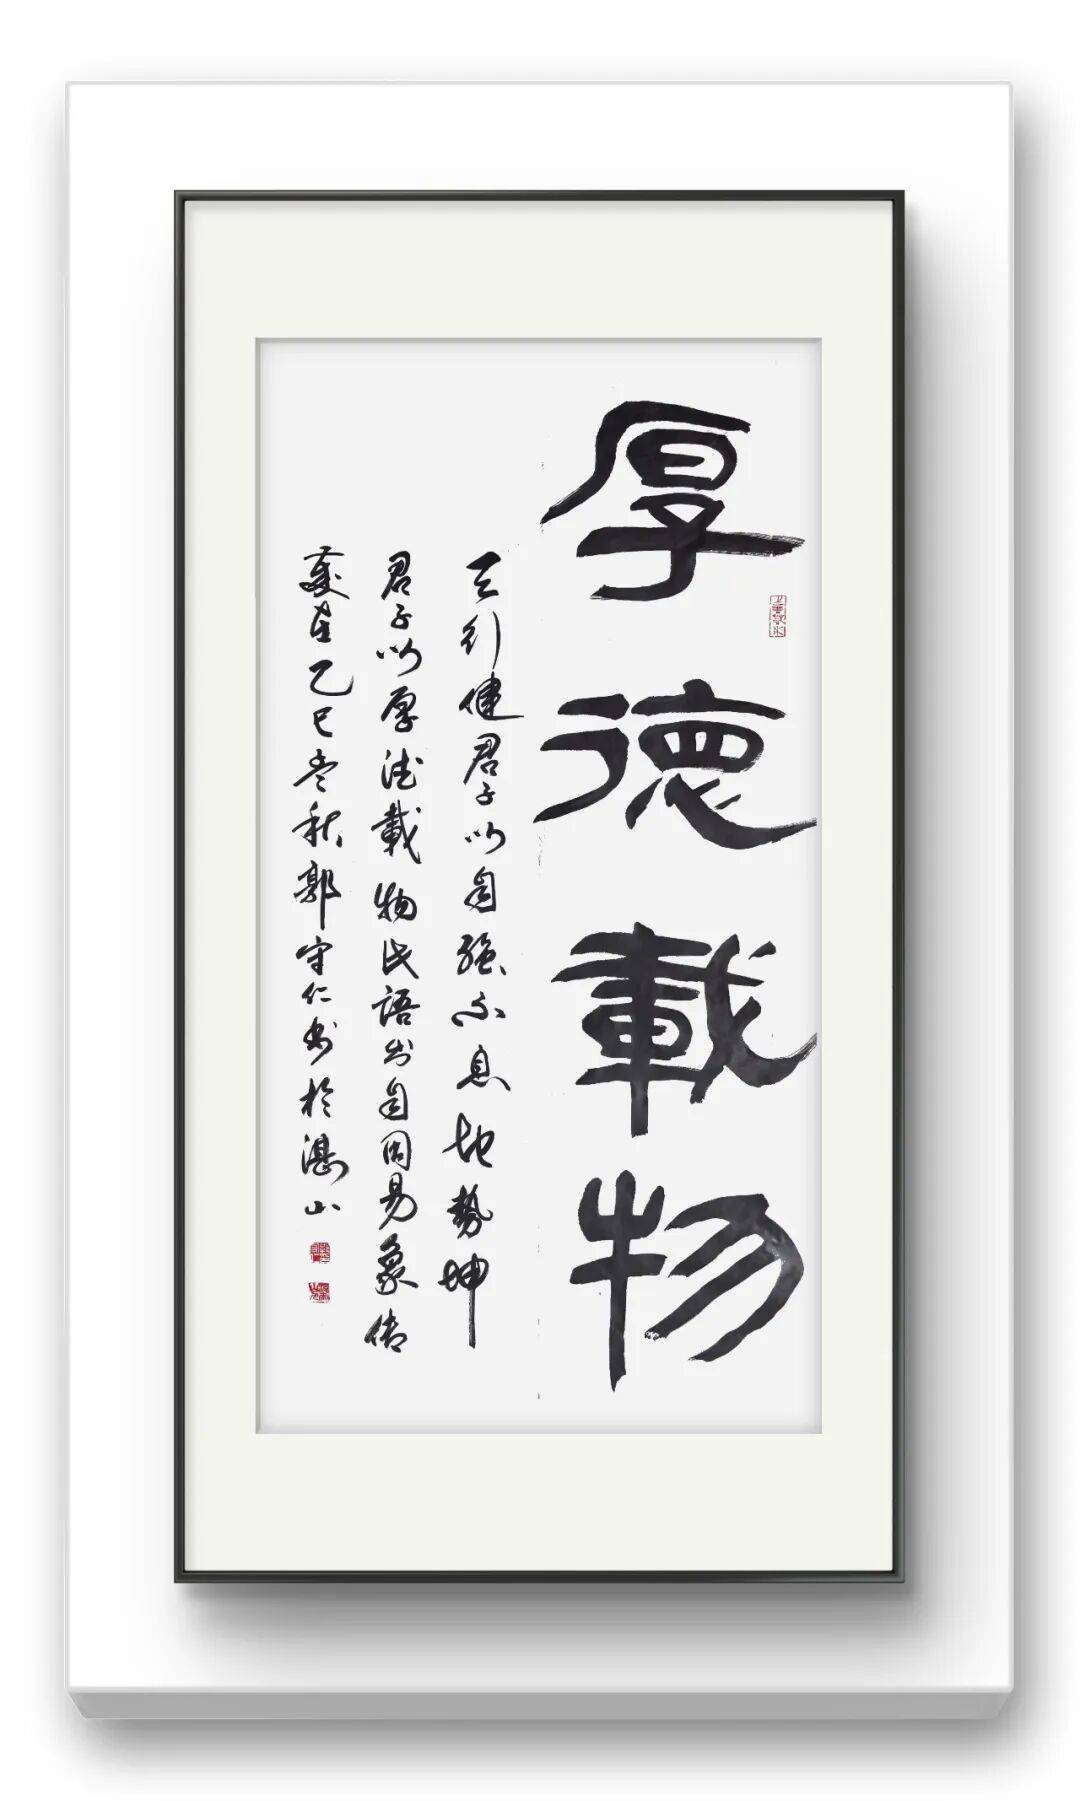 厚德載物
上善若水
天行健君子以自強不息地勢坤
君子以厚德載物此語出自周易象傳
歲在乙巳秋郭守仁書於湛山